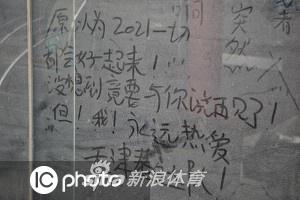 原以为2021一切
都会好起来！
没想到竟要与你说再见了！
但！我！永远热爱
天津泰
队！
间
突然
着
iC photo 新浪体育